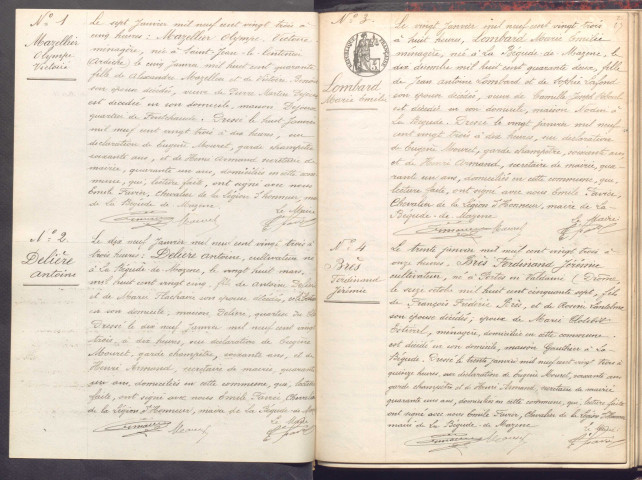 N° 1
Mazellier
Olympe
Victorie
Le sept Janvier mil neuf cent vingt trois à
cinq heures : Mazellier Olympe Victorie
ménagère, née à Saint-Jean-le-Centenier
Ardèche, le cinq Janvier mil huit cent quarante
fille de Alexandre Mazellier et de Victoire
son épouse décédés, veuve de Pierre
est décédée en son domicile, maison
quartier de Dressé le huit Janvier
mil neuf cent vingt trois à dix heures, sur
déclaration de Eugène Mouret, garde champêtre
cinquante ans, et de Henri Armand secrétaire de
mairie, quarante un ans, domiciliés en cette com
mune, qui, lecture faite, ont signé avec nous
Emile Favier, Chevalier de la Légion d'Honneur, maire
de la Bégude de Mazenc
Le Maire
N° 2
Delière
Antoine
Le dix neuf Janvier mil neuf cent vingt trois à
trois heures : Delière Antoine, cultivateur né
à La Bégude de Mazenc, le vingt huit mars
mil huit cent vingt cinq, fils de Antoine Delière
et de Marie son épouse décédés, est décédé
en son domicile, maison Delière, quartier
Dressé le dix neuf Janvier mil neuf cent vingt
trois, à dix heures, sur déclaration de Eugène
Mouret, garde champêtre, cinquante ans, et de
Henri Armand, secrétaire de mairie, quarante
un ans, domiciliés en cette commune, qui, lecture
faite, ont signé avec nous Emile Favier, Chevalier
de la Légion d'Honneur, maire de la Bégude de Mazenc
Le Maire
N° 3
Lombard
Marie Emilie
Le vingt Janvier mil neuf cent vingt trois
à huit heures, Lombard Marie Emilie
ménagère, née à La Bégude de Mazenc, le
dix mil huit cent quarante deux, fille
de Jean Antoine Lombard et de Sophie
son épouse décédés, veuve de Camille Joseph
est décédée en son domicile, maison à
La Bégude. Dressé le vingt Janvier mil neuf
cent vingt trois à dix heures, sur déclaration
de Eugène Mouret, garde champêtre, cinquante ans
et de Henri Armand, secrétaire de mairie, qua
rante un ans, domiciliés en cette commune, qui,
lecture faite, ont signé avec nous Emile Favier,
Chevalier de la Légion d'Honneur, maire de La
Bégude de Mazenc
Le Maire
N° 4
Brès
Ferdinand
Jérémie
Le trente Janvier mil neuf cent vingt trois à
onze heures, Brès Ferdinand Jérémie
cultivateur, né à Portes en Valdaine (Drôme)
le onze octobre mil huit cent cinquante sept, fils
de François Frédéric Brès, et de
son épouse décédés, époux de Marie
ménagère, domiciliée en cette commune
est décédé en son domicile, maison Gauthier à La
Bégude. Dressé le trente Janvier mil neuf cent vingt trois à
quinze heures, sur déclaration de Eugène Mouret, cinquante ans
garde champêtre et de Henri Armand, secrétaire de mairie
quarante un ans, domiciliés en cette commune, qui, lecture faite
ont signé avec nous Emile Favier, Chevalier de la Légion d'Honneur
maire de la Bégude de Mazenc
Le Maire